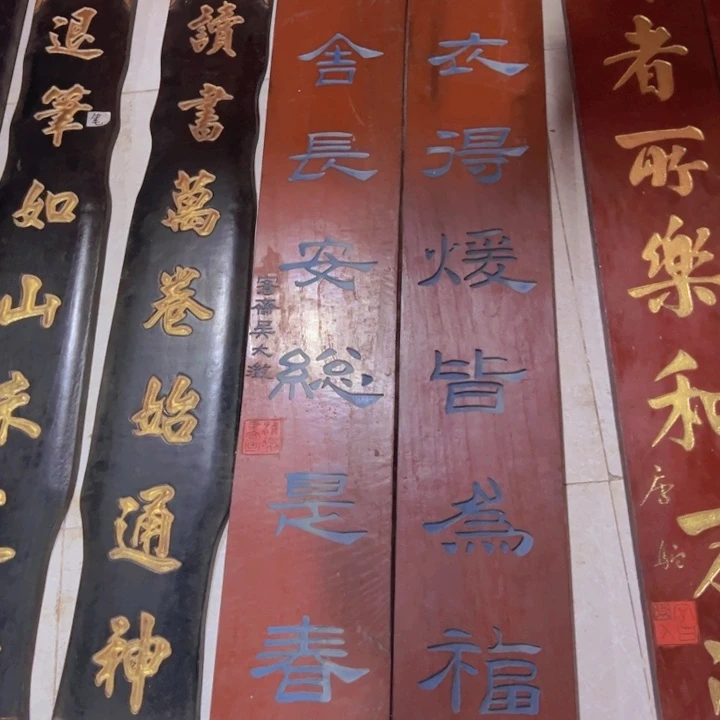 者所樂和
唐駝
衣得煖皆為福
舍長安總是春
愙齋吳大澂
讀書萬卷始通神
退筆如山未